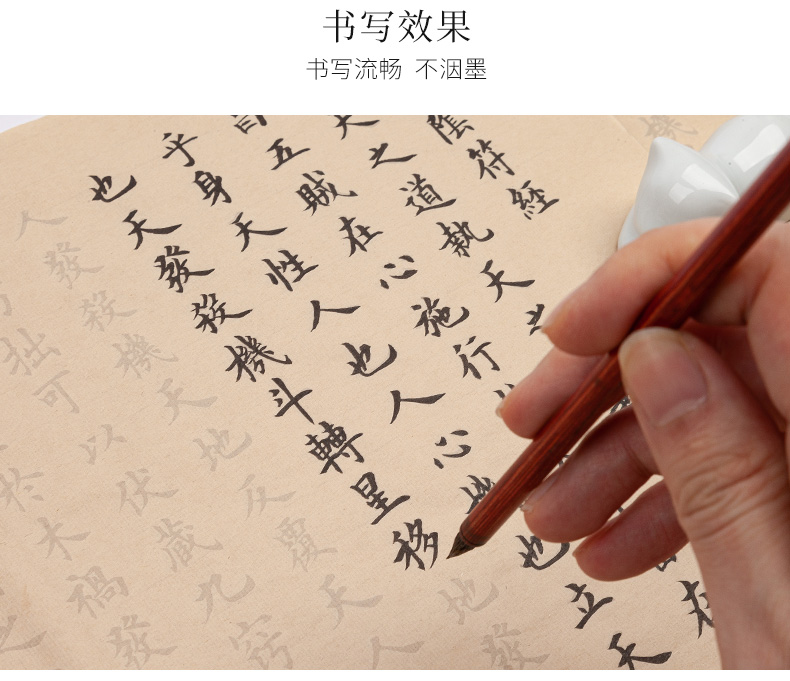 书写效果
书写流畅 不洇墨
機
陰符經
天之道執天
五賊在心施行
乎身天性人也人心機也立天
也天發殺機斗轉星移地發
人發殺機天地反覆天人
拙可以伏藏九竅
於木禍發